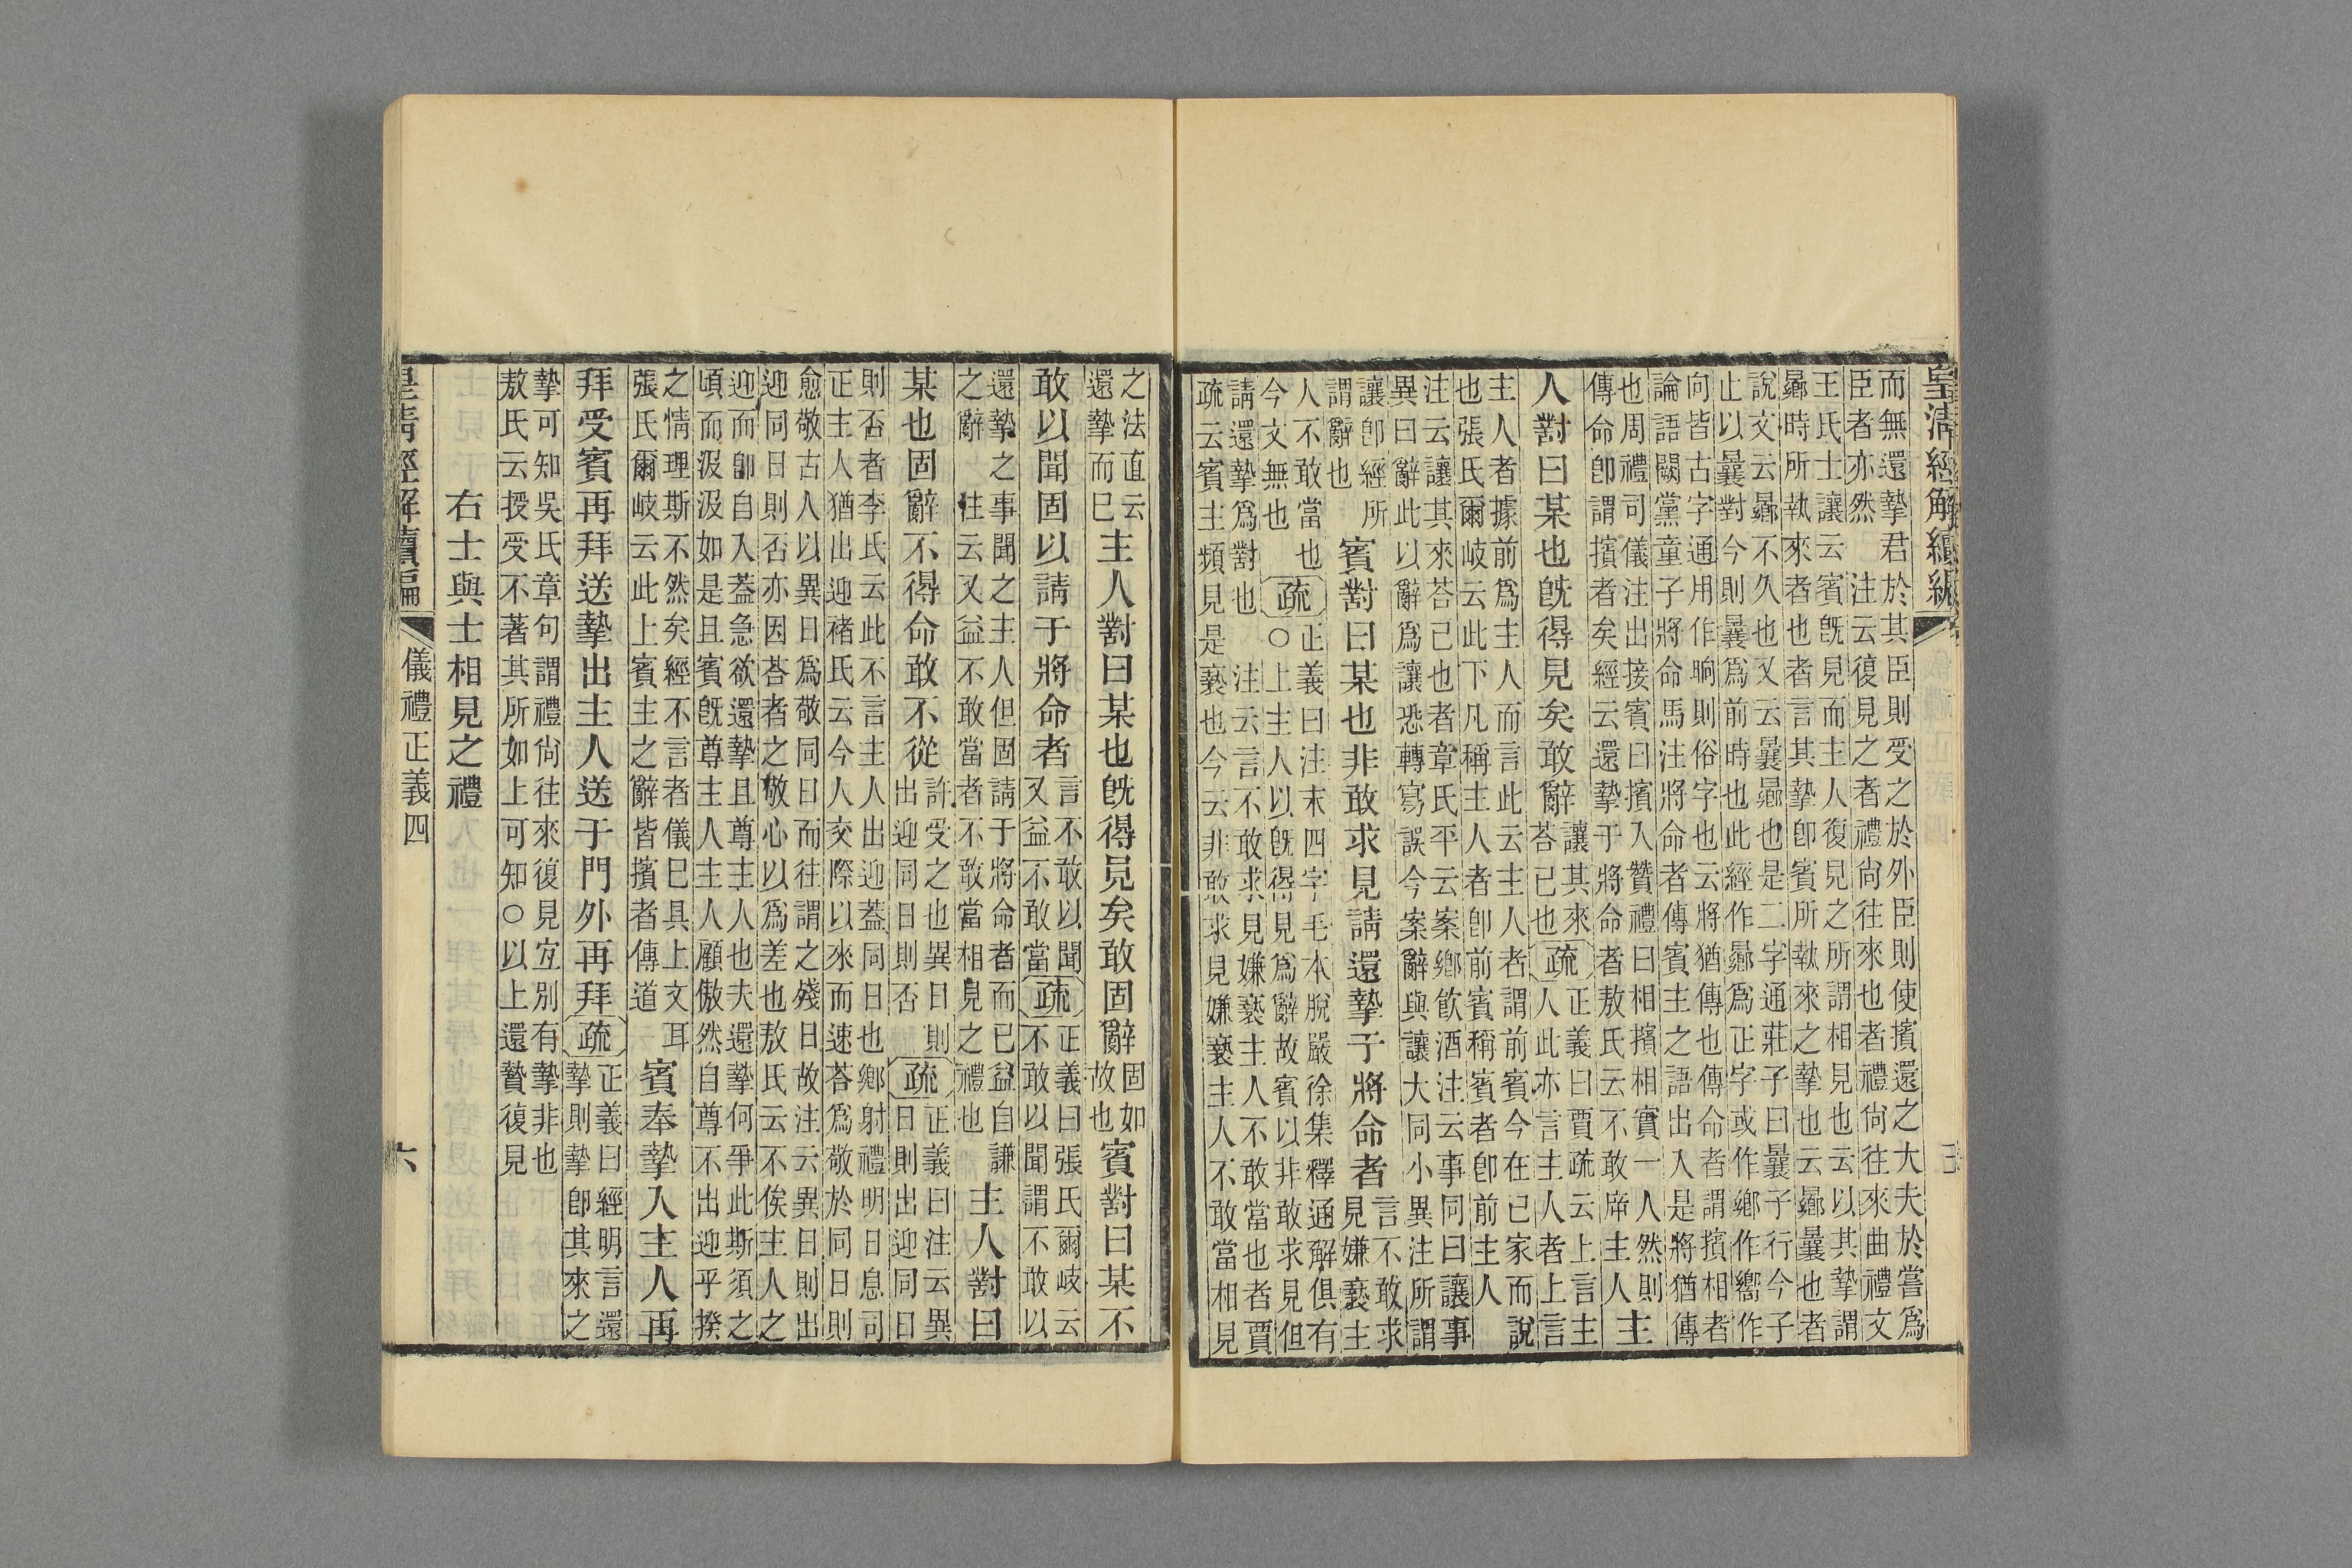 皇清經解續編
而無還摯君於其臣則受之於外臣則使擯還之大夫於嘗爲
臣者亦然　注云復見之者禮尚往來也者禮尚往來曲禮文
王氏士讓云賓旣見而主人復見之所謂相見也云以其摯謂
曏時所執來者也者言其摯卽賓所執來之摯也云曏曩也者
說文云曏不久也又云曩曏也是二字通莊子曰曩子行今子
止以曩對今則曩爲前時也此經作曏爲正字或作鄉作嚮作
向皆古字通用作晌則俗字也云將猶傳也傳命者謂擯相者
論語闕黨童子將命馬注將命者傳賓主之語出入是將猶傳
也周禮司儀注出接賓曰擯入贊禮曰相擯相實一人然則
傳命卽謂擯者矣經云還摯于將命者敖氏云不敢席主人
主
人對曰某也旣得見矣敢辭
讓其來
荅已也
疏
正義曰賈疏云上言主
人此亦言主人者上言
主人者據前爲主人而言此云主人者謂前賓今在已家而說
也張氏爾岐云此下凡稱主人者卽前賓稱賓者卽前主人
注云讓其來荅己也者章氏平云案鄉飲酒注云事同曰讓事
異曰辭此以辭爲讓恐轉寫誤今案辭與讓大同小異注所謂
讓卽經所
謂辭也
賓對曰某也非敢求見請還摯于將命者
言不敢求
見嫌褻主
人不敢當也
今文無也
疏
正義曰注末四字毛本脫嚴徐集釋通解俱有
○上主人以旣得見爲辭故賓以非敢求見但
請還摯爲對也　注云言不敢求見嫌褻主人不敢當也者賈
疏云賓主頻見是褻也今云非敢求見嫌褻主人不敢當相見
之法直云
還摯而已
主人對曰某也旣得見矣敢固辭
固如
故也
賓對曰某不
敢以聞固以請于將命者
言不敢以聞
又益不敢當
疏
正義曰張氏爾岐云
不敢以聞謂不敢以
還摯之事聞之主人但固請于將命者而已益自謙
之辭　注云又益不敢當者不敢當相見之禮也
主人對曰
某也固辭不得命敢不從
許受之也異日則
出迎同日則否
疏
正義曰注云異
日則出迎同日
則否者李氏云此不言主人出迎蓋同日也鄉射禮明日息司
正主人猶出迎褚氏云今人交際以來而速荅爲敬於同日則
愈敬古人以異日爲敬同日而往謂之殘日故注云異日則出
迎同日則否亦因荅者之敬心以爲差也敖氏云不俟主人之
迎而卽自入蓋急欲還摯且尊主人也夫還摯何爭此斯須之
頃而汲汲如是且賓旣尊主人主人顧傲然自尊不出迎乎揆
之情理斯不然矣經不言者儀已具上文耳
張氏爾岐云此上賓主之辭皆擯者傳道
賓奉摯入主人再
拜受賓再拜送摯出主人送于門外再拜
疏
正義曰經明言還
摯則摯卽其來之
摯可知吳氏章句謂禮尚往來復見宜別有摯非也
敖氏云授受不著其所如上可知○以上還贄復見
右士與士相見之禮
皇清經解續編
儀禮正義四
六